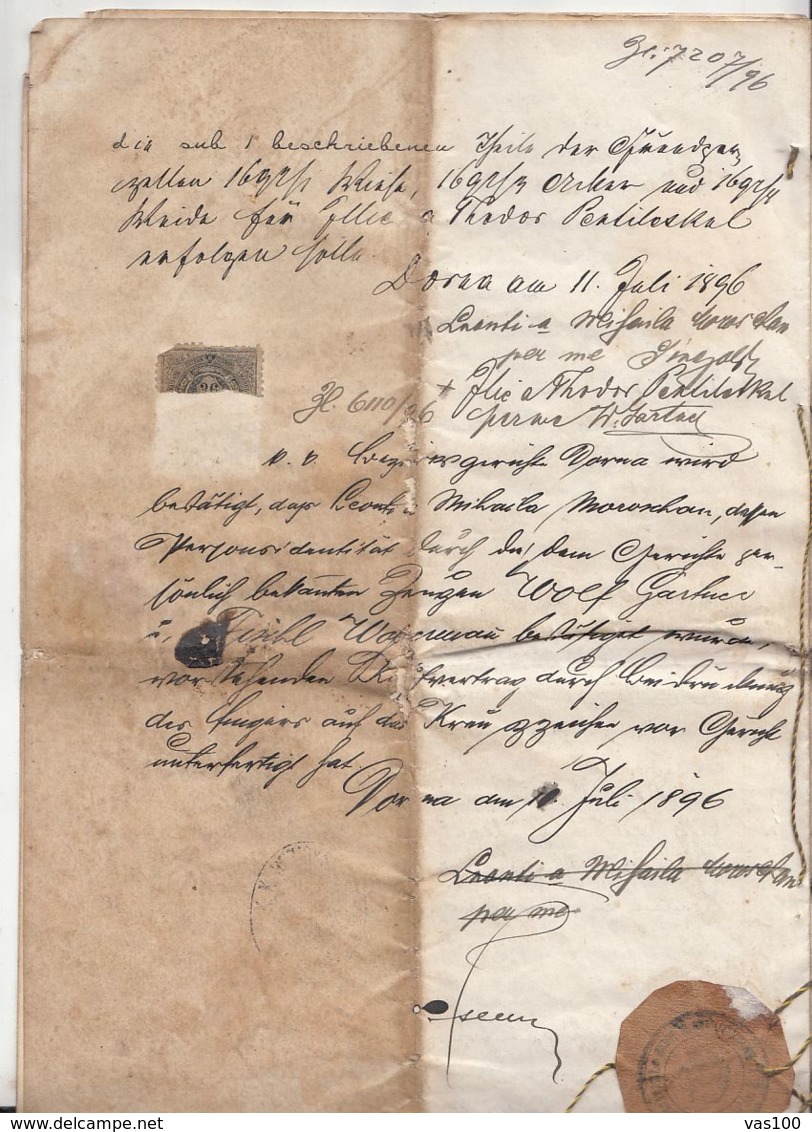 Zl: 7207/96
die sub 1 beschriebenen Theile der Grundpar
zellen Wiese, Acker und
Weide für Ilie a Thodor Pentileskul
erfolgen solle.
Dorna am 11. Juli 1896
Leonti a Mihaila Moroschan
per me
+ Ilie a Thodor Pentileskul
Zl. 6110/96 per me W. Gartner
36
Bezirksgerichte Dorna wird
bestätigt, daß Leonti a Mihaila Moroschan, dessen
Personsidentität durch die dem Gerichte per-
sönlich bekannten Zeugen Wolf Gartner
u. Fischl Wagerman bestätiget wurde,
vorstehenden Kaufvertrag durch Beidrückung
des Fingers auf das Kreuzzeichen vor Gericht
unterfertigt hat.
Dorna am Juli 1896
Leonti a Mihaila Moroschan
per me
vas100